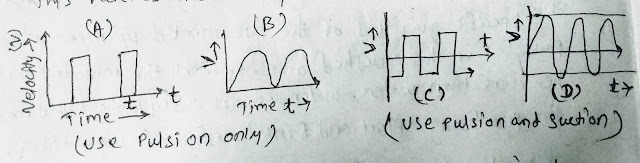 (A)
(B)
Velocity (V) →
V →
V →
V →
t
t
t
Time →
Time t →
(C)
(D)
t →
(Use Pulsion only)
(Use pulsion and suction)